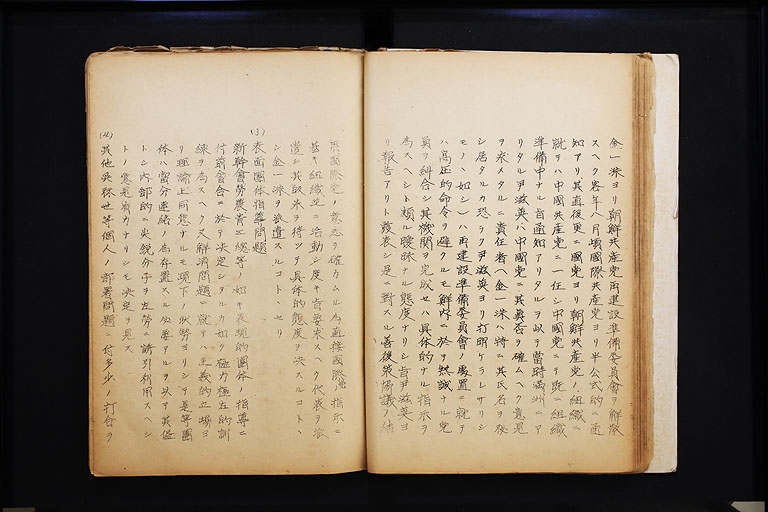 金一派ヨリ朝鮮共産党再建設準備委員會ヲ解散
スヘク客年八月頃國際共産党ヨリ半公式的ニ通
知アリ其直後更ニ國党ヨリ朝鮮共産党ノ組織ニ
就テハ中國共産党ニ一任シ中國党ニテ既ニ組織
準備中ナル旨通知アリタルヲ以テ當時満洲ニア
リタル尹滋英ハ中國党ニ其真否ヲ確ムヘク意見
ヲ求メタルニ責任者ヘ金一派ハ特ニ其氏名ヲ秘
シ居タルカ恐ラク尹滋英ヨリ打明ケラレサリシ
モノヽ如シ)ハ再建設準備委員會ノ處置ニ就テ
ハ高圧的命令ヲ避クルモ鮮内ニ於テ熱誠ナル党
員ヲ糾合シ其機関ヲ完成セハ具体的ナル指示ヲ
為スヘシト頗ル曖昧ナル態度ナリシ旨尹滋英ヨ
リ報告アリト發表シ是ニ對スル善後策協議ノ結
果國際党ノ意思ヲ確カムル為直接國際党ノ指示ニ
基キ組織並ニ活動シ度キ旨要求スヘク代表ヲ派
遣シ其歸来ヲ待ツテ具体的態度ヲ決スルコトヽ
シ金一派ヲ派遣スルコトヽセリ
(3)表面團体指導問題
新幹會勞農青三總等ノ如キ表現的團体ノ指導ニ
付前會合ニ於テ決定シタルカ如ク極力極左的訓
練ヲ為スヘク又解消問題ニ就テハ主義的立場ヨ
リ理論上同意ナルモ現下ノ状勢ヨリシテ是等團
体ハ當分連絡ノ為存置スル必要アルヲ以テ其儘
トシ内部的ニ尖鋭分子ヲ左勞ニ誘引利用スヘシ
トノ意見有力ナリシモ決定ヲ見ス
(4)其他吳秾世等個人ノ部署問題ニ付多少ノ打合ヲ